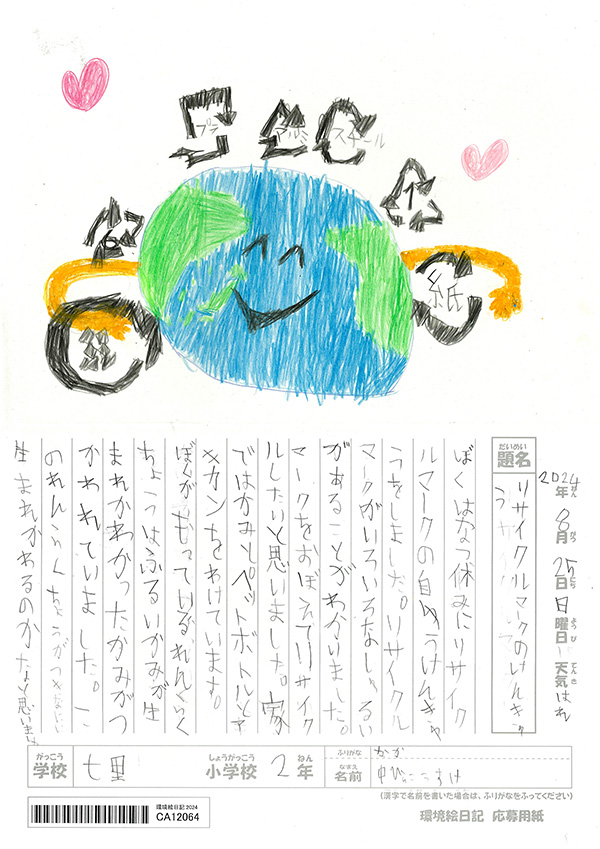 プラ
アルミ
スチール
1
6
紙
2024年 8月 25日 日曜日 天気 はれ
題名 リサイクルマークのけんきゅ
う
ぼくはなつ休みにリサイク
ルマークの自ゆうけんきゅ
うをしました。リサイクル
マークがいろいろなしゅるい
があることがわかりました。
マークをおぼえてリサイク
ルしたいと思いました。家
ではかみとペットボトルと
カンをわけています。
ぼくがもっているれんらく
ちょうはふるいかみが生
まれかわったかみがつ
かわれていました。こ
のれんらくちょうがつぎなにに
生まれかわるのかなと思いました。
学校 七里 小学校 2年
ふりがな
名前
(漢字で名前を書いた場合は、ふりがなをふってください)
環境絵日記2024
CA12064
環境絵日記 応募用紙